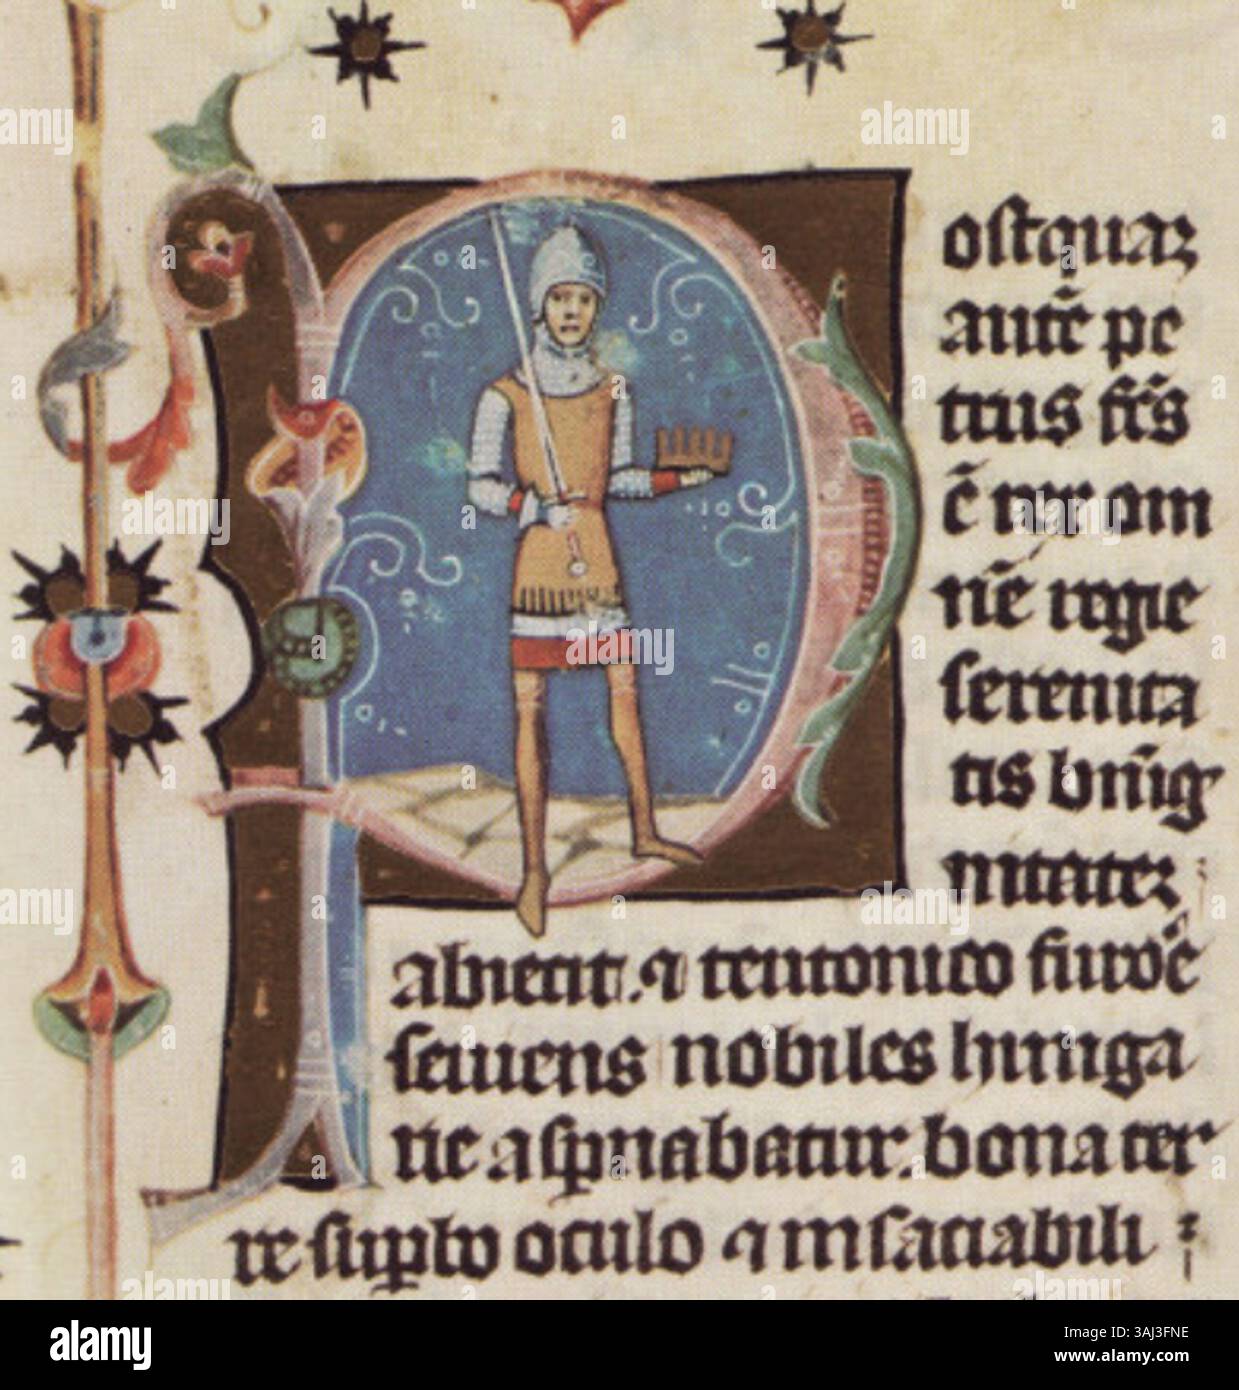 P oſtquaz
autē pe
trus fc̄s
ē rex om
nē regie
ſerenita
tis bnīg
nitatez
abiecit. ⁊ teutonico furoē
ſeuiens nobiles hunga
rie aſꝑnabatur. bona ter
re ſuꝑbo oculo ⁊ inſaciabili
alamy
Image ID: 3AJ3FNE
www.alamy.com